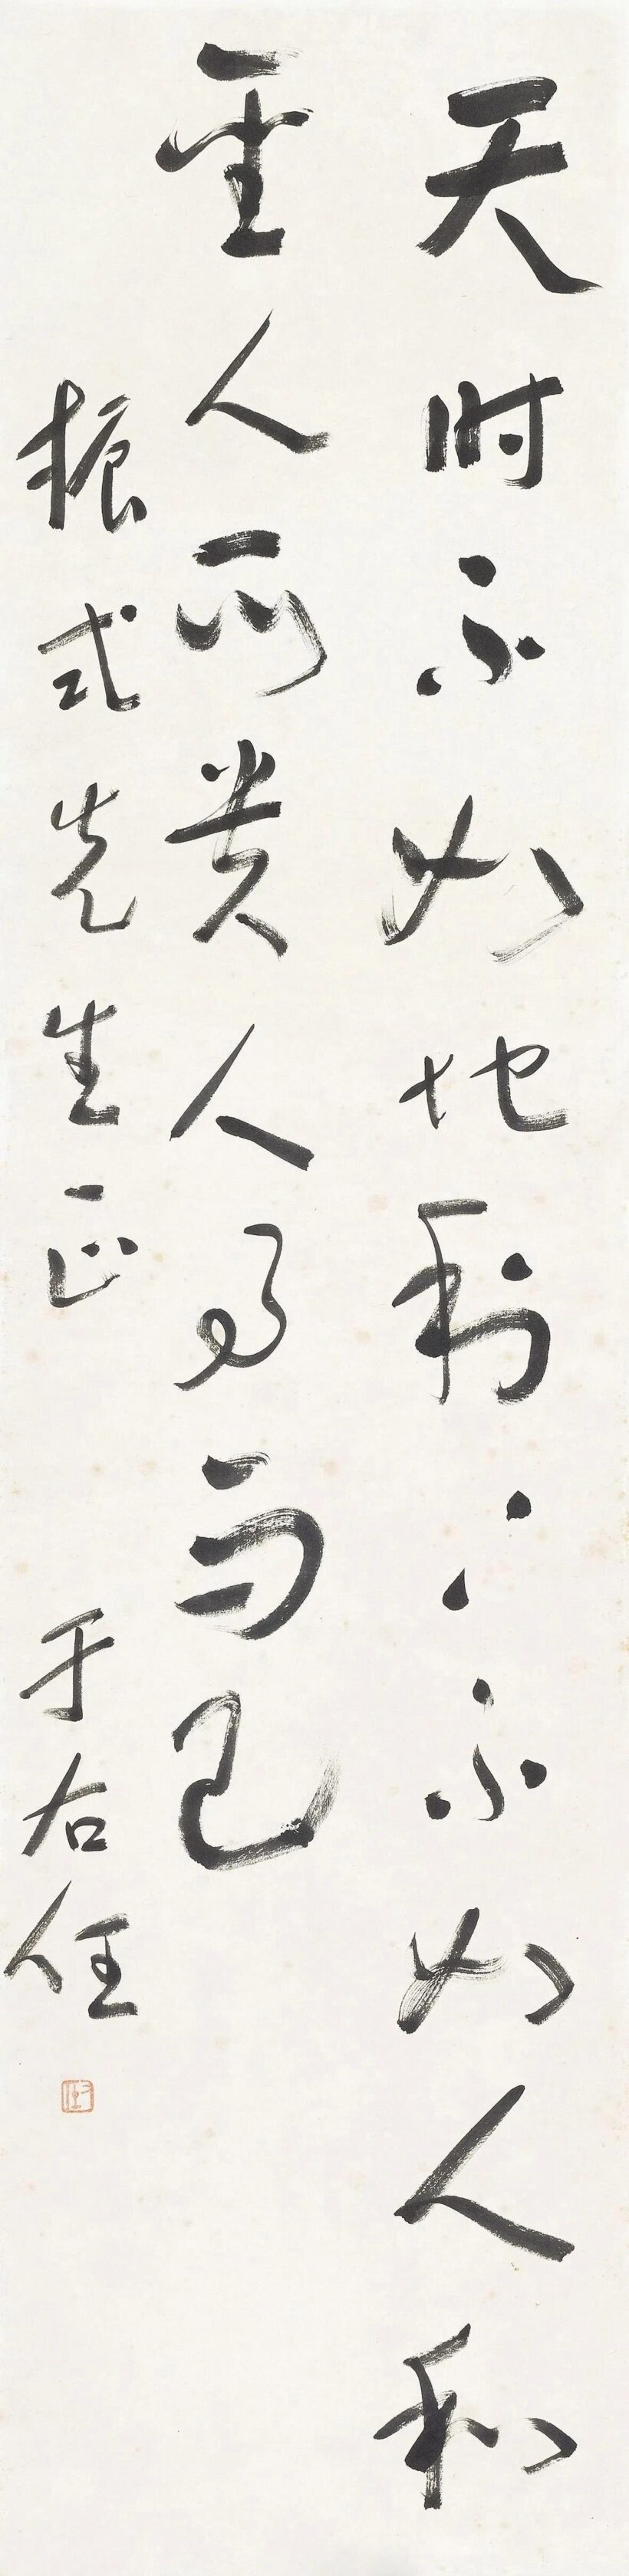 天時不如地利〻不如人和
聖人所貴人事而已
振武先生正
于右任